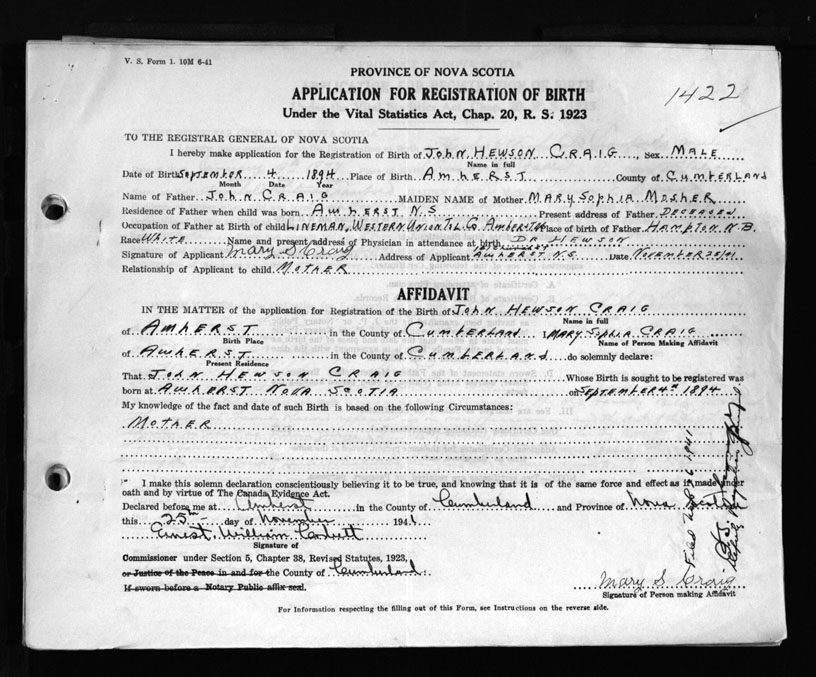 V. S. Form 1. 10M 6-41
PROVINCE OF NOVA SCOTIA
APPLICATION FOR REGISTRATION OF BIRTH
1422
Under the Vital Statistics Act, Chap. 20, R. S. 1923
TO THE REGISTRAR GENERAL OF NOVA SCOTIA
I hereby make application for the Registration of Birth of JOHN HEWSON CRAIG, Sex MALE
Name in full
Date of Birth SEPTEMBER 4 1894 Place of Birth AMHERST County of CUMBERLAND
Month Date Year
Name of Father JOHN CRAIG MAIDEN NAME of Mother MARY SOPHIA MOSHER
Residence of Father when child was born AMHERST N.S Present address of Father DECEASED
Occupation of Father at Birth of child LINEMAN, WESTERN UNION TEL CO. AMHERST Place of birth of Father HAMPTON N.B.
Race WHITE Name and present address of Physician in attendance at birth DR HEWSON
Signature of Applicant Mary S Craig Address of Applicant AMHERST N.S. Date NOVEMBER 25/41.
Relationship of Applicant to child MOTHER
AFFIDAVIT
IN THE MATTER of the application for Registration of the Birth of JOHN HEWSON CRAIG
Name in full
of AMHERST in the County of CUMBERLAND I, MARY SOPHIA CRAIG
Birth Place Name of Person Making Affidavit
of AMHERST in the County of CUMBERLAND do solemnly declare:
Present Residence
That JOHN HEWSON CRAIG Whose Birth is sought to be registered was
born at AMHERST NOVA SCOTIA on SEPTEMBER 4th 1894
My knowledge of the fact and date of such Birth is based on the following Circumstances:
MOTHER
I make this solemn declaration conscientiously believing it to be true, and knowing that it is of the same force and effect as if made under
oath and by virtue of The Canada Evidence Act.
Declared before me at Amherst in the County of Cumberland and Province of Nova
this 25th day of November 1941
Ernest William
Signature of
Commissioner under Section 5, Chapter 38, Revised Statutes, 1923,
or Justice of the Peace in and for the County of Cumberland.
If sworn before a Notary Public affix seal.
Mary S Craig
Signature of Person making Affidavit
For Information respecting the filling out of this Form, see Instructions on the reverse side.
Filed 6 1941